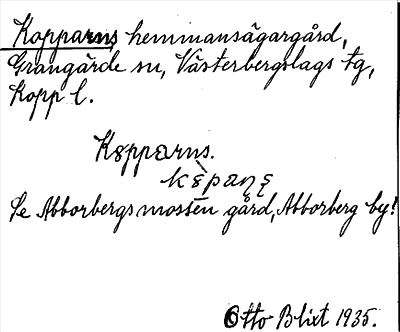 Kopparns, hemmansägargård,
Grangärde sn, Västerbergslags tg,
Kopp l.
Kopparns.
Se Abborbergsmossen gård, Abborberg by!
Otto Blixt 1935.